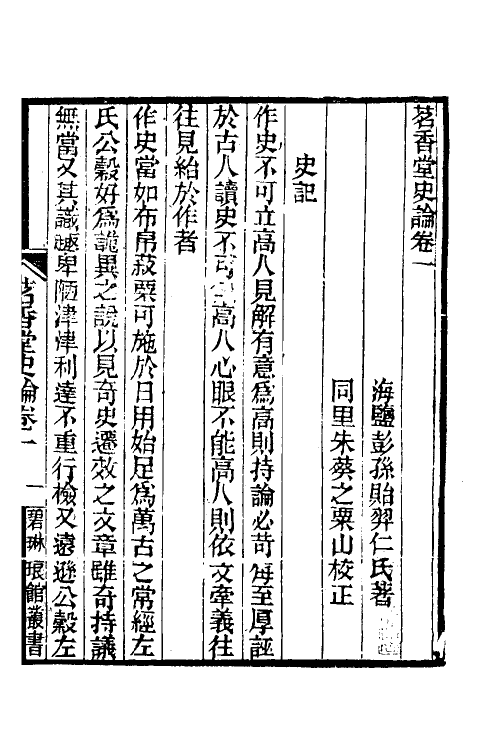 茗香堂史論卷一
海鹽彭孫貽羿仁氏著
同里朱葵之粟山校正
史記
作史不可立高人見解有意爲高則持論必苛每至厚誣
於古人讀史不可無高人心眼不能高人則依文牽義往
往見紿於作者
作史當如布帛菽粟可施於日用始足爲萬古之常經左
氏公穀好爲詭異之說以見奇史遷效之文章雖奇持議
無當又其識趣卑陋津津利達不重行檢又遠遜公穀左
茗香堂史論卷一
一
碧琳琅館叢書